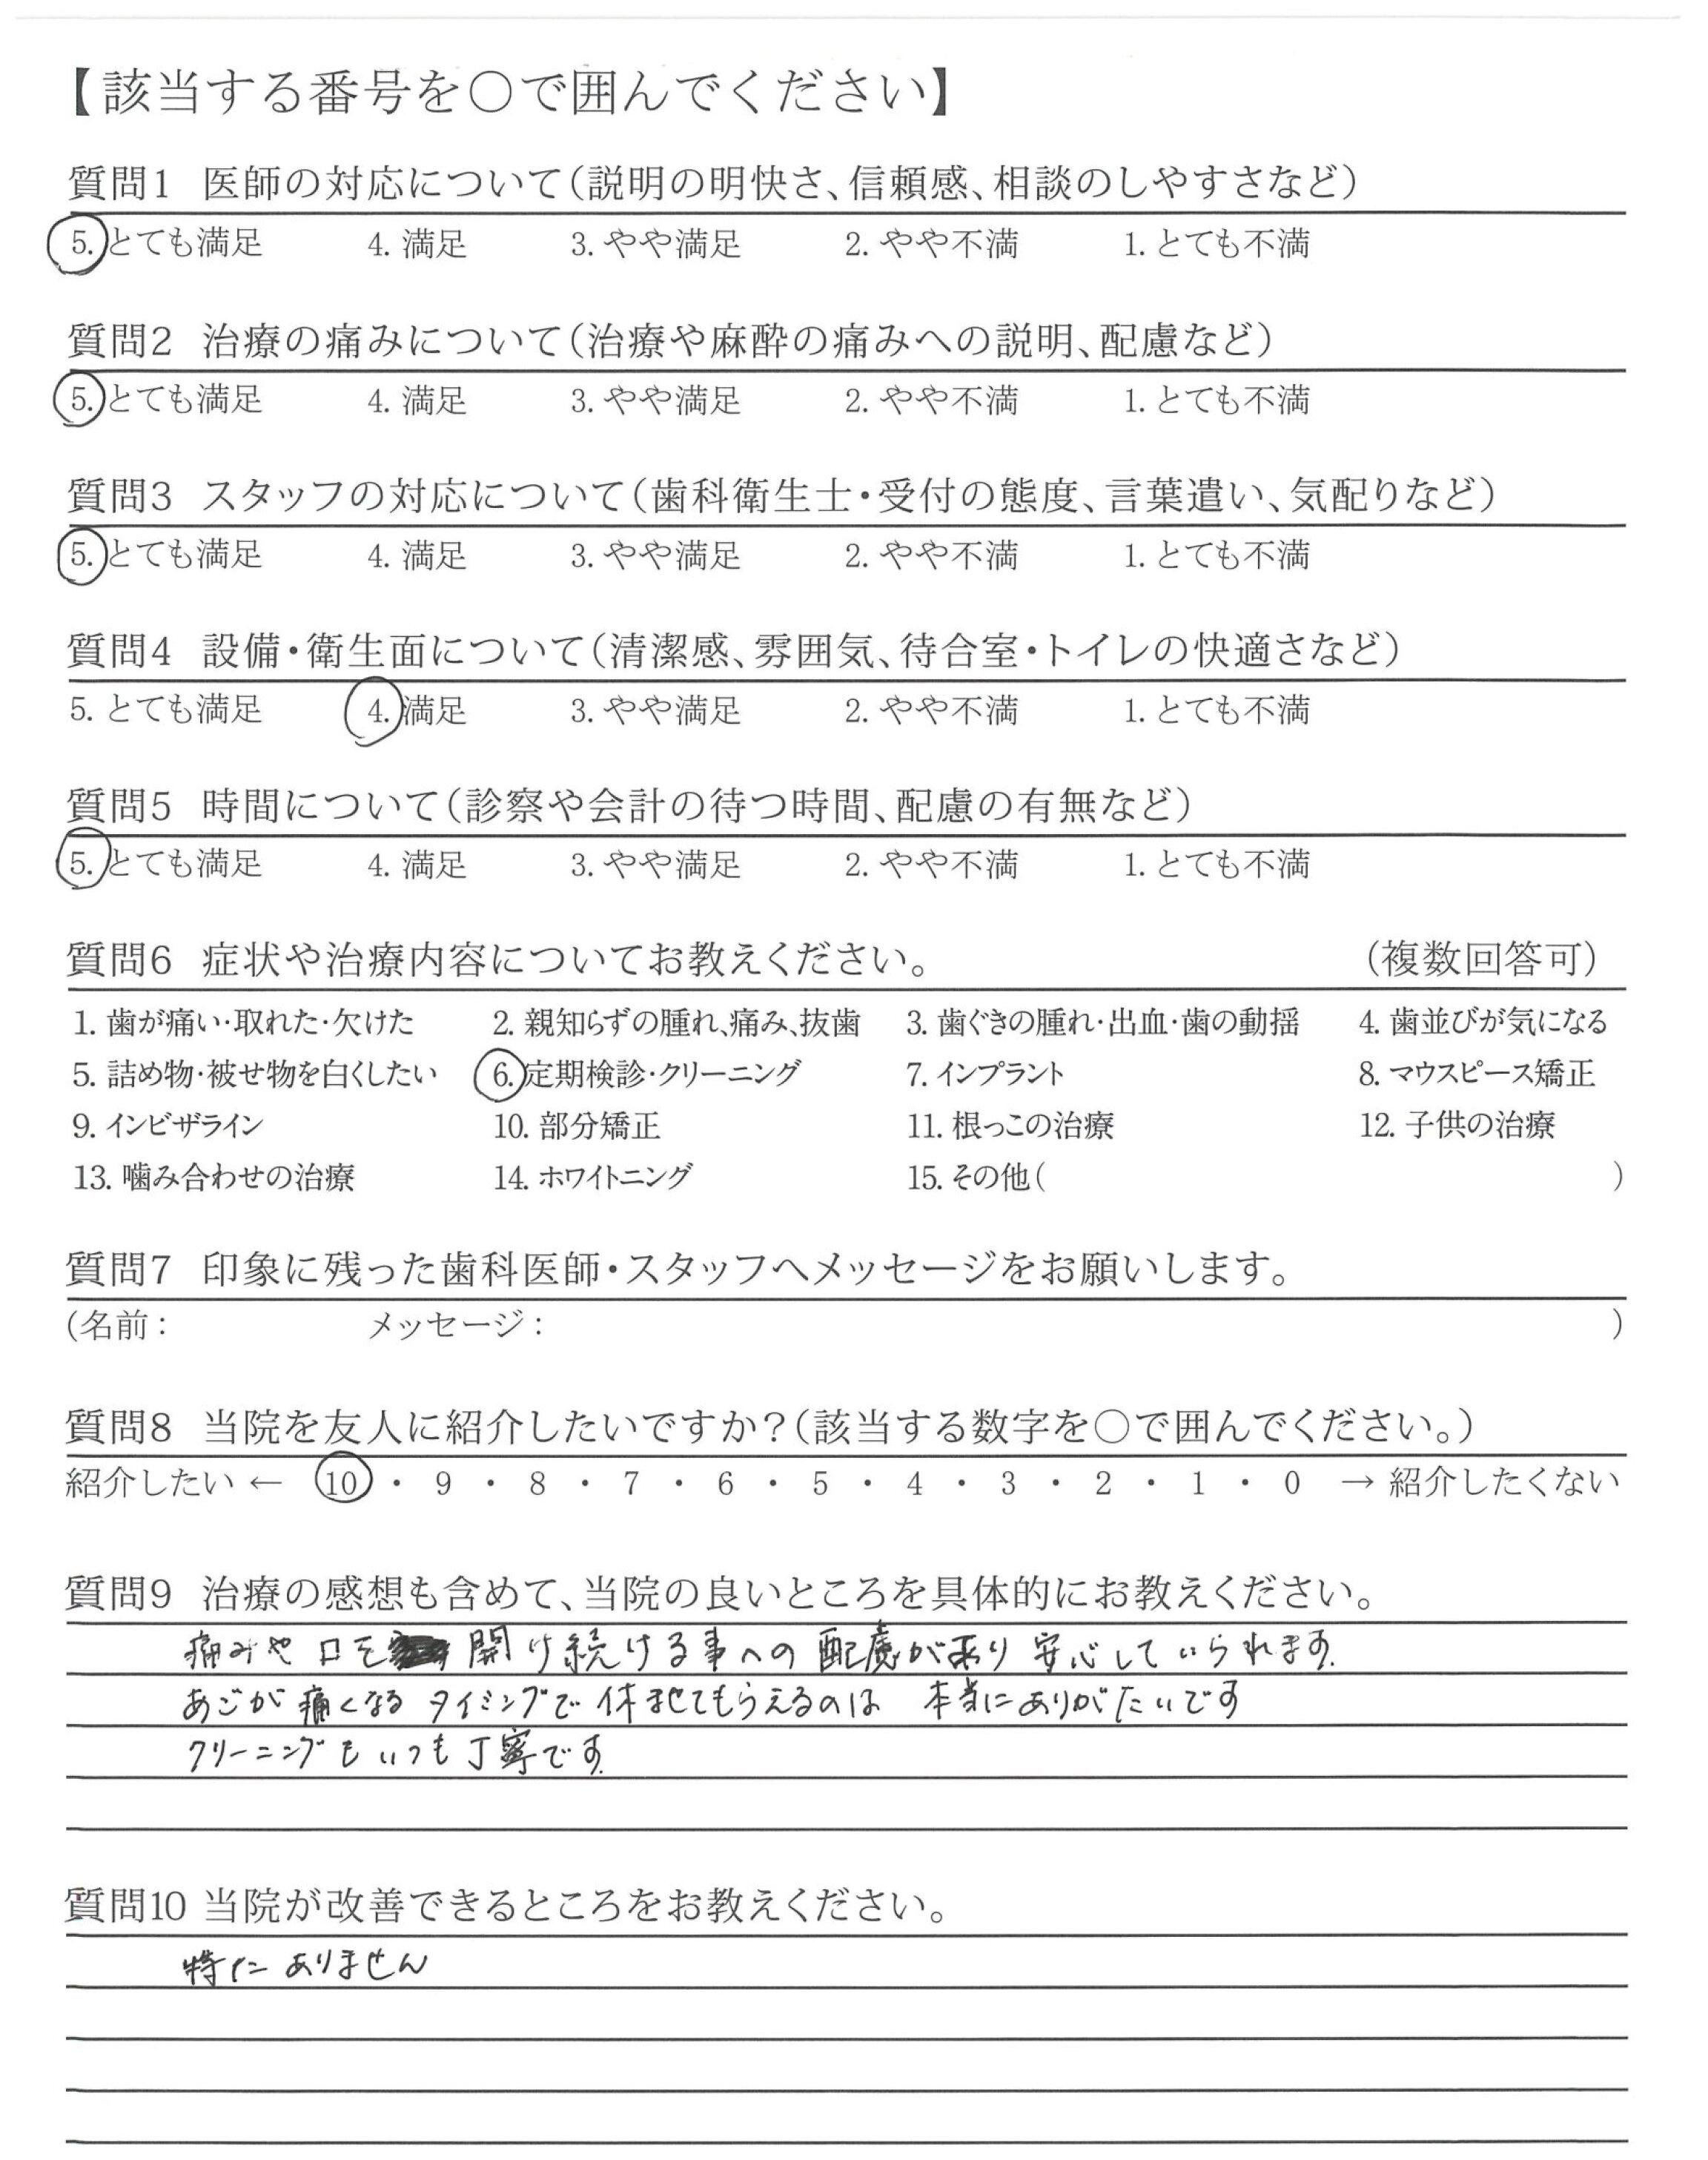 【該当する番号を○で囲んでください】
質問1 医師の対応について(説明の明快さ、信頼感、相談のしやすさなど)
5. とても満足 4. 満足 3. やや満足 2. やや不満 1. とても不満
質問2 治療の痛みについて(治療や麻酔の痛みへの説明、配慮など)
5. とても満足 4. 満足 3. やや満足 2. やや不満 1. とても不満
質問3 スタッフの対応について(歯科衛生士・受付の態度、言葉遣い、気配りなど)
5. とても満足 4. 満足 3. やや満足 2. やや不満 1. とても不満
質問4 設備・衛生面について(清潔感、雰囲気、待合室・トイレの快適さなど)
5. とても満足 4. 満足 3. やや満足 2. やや不満 1. とても不満
質問5 時間について(診察や会計の待つ時間、配慮の有無など)
5. とても満足 4. 満足 3. やや満足 2. やや不満 1. とても不満
質問6 症状や治療内容についてお教えください。 (複数回答可)
1. 歯が痛い・取れた・欠けた 2. 親知らずの腫れ、痛み、抜歯 3. 歯ぐきの腫れ・出血・歯の動揺 4. 歯並びが気になる
5. 詰め物・被せ物を白くしたい 6. 定期検診・クリーニング 7. インプラント 8. マウスピース矯正
9. インビザライン 10. 部分矯正 11. 根っこの治療 12. 子供の治療
13. 噛み合わせの治療 14. ホワイトニング 15. その他( )
質問7 印象に残った歯科医師・スタッフへメッセージをお願いします。
(名前: メッセージ: )
質問8 当院を友人に紹介したいですか?(該当する数字を○で囲んでください。)
紹介したい ← 10 ・ 9 ・ 8 ・ 7 ・ 6 ・ 5 ・ 4 ・ 3 ・ 2 ・ 1 ・ 0 → 紹介したくない
質問9 治療の感想も含めて、当院の良いところを具体的にお教えください。
痛みや口を 開け続ける事への配慮があり安心していられます。
あごが痛くなるタイミングで休ませてもらえるのは 本当にありがたいです
クリーニングもいつも丁寧です。
質問10 当院が改善できるところをお教えください。
特にありません